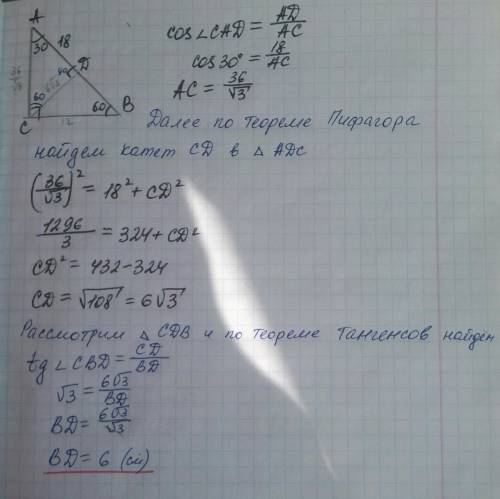 A
18
30
D
90
6√3
36/√3
60
60
B
C
12
cos∠CAD = AD/AC
cos 30° = 18/AC
AC = 36/√3
Далее по теореме Пифагора
найдем катет CD в △ ADC
(36/√3)² = 18² + CD²
1296/3 = 324 + CD²
CD² = 432 - 324
CD = √108 = 6√3
Рассмотрим △ CDB и по теореме Тангенсов найдём
tg ∠CBD = CD/BD
√3 = 6√3/BD
BD = 6√3/√3
BD = 6 (см)